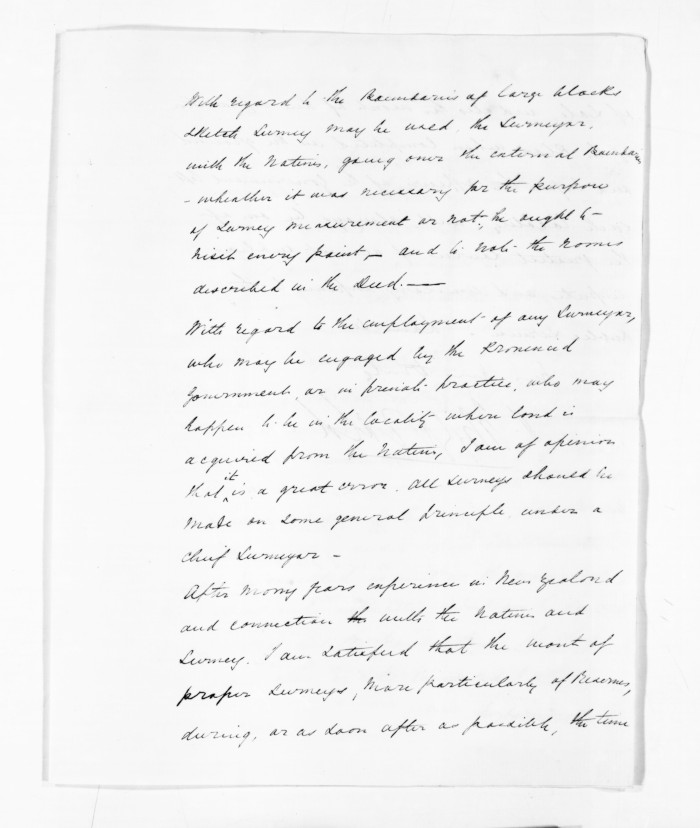 With regard to the Boundaries of large blocks
sketch Survey may be used, the Surveyor,
with the Natives, going over the external Boundaries
- wheather it was necessary for the purpose
of Survey measurement or not, he ought to
visit every point, - and to note the Names
described in the Deed. -
With regard to the employment of any Surveyor,
who may be engaged by the Provincial
Government, or in private practice, who may
happen to be in the locality where land is
acquired from the Natives, I am of opinion
that it is a great error. All Surveys should be
made on some general principle under a
Chief Surveyor -
After many years experience in New Zealand
and connection with the Natives and
Survey. I am satisfied that the want of
proper Surveys, more particularly of Reserves,
during, or as soon after as possible, the time